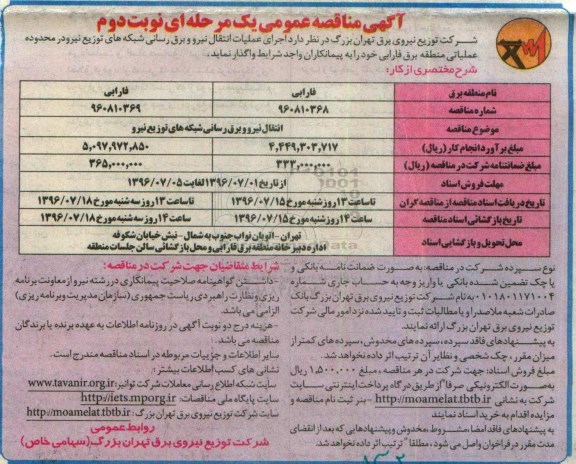 آگهی مناقصه عمومی یک مرحله ای نوبت دوم
شرکت توزیع نیروی برق تهران بزرگ در نظر دارد اجرای عملیات انتقال نیرو و برق رسانی شبکه های توزیع نیرو در محدوده
عملیاتی منطقه برق فارابی خود را به پیمانکاران واجد شرایط واگذار نماید.
شرح مختصری از کار:
نام منطقه برق فارابی فارابی
شماره مناقصه ۹۶۰۸۱۰۳۶۸ ۹۶۰۸۱۰۳۶۹
موضوع مناقصه انتقال نیرو و برق رسانی شبکه های توزیع نیرو
مبلغ برآورد انجام کار (ریال) ۴,۴۴۹,۳۰۳,۷۱۷ ۵,۰۹۷,۹۷۲,۸۵۰
مبلغ ضمانتنامه شرکت در مناقصه (ریال) ۳۳۳,۰۰۰,۰۰۰ ۳۶۵,۰۰۰,۰۰۰
مهلت فروش اسناد از تاریخ ۱۳۹۶/۰۷/۰۱ لغایت ۱۳۹۶/۰۷/۰۵
تاریخ دریافت اسناد مناقصه از مناقصه گران تا ساعت ۱۳ روز شنبه مورخ ۱۳۹۶/۰۷/۱۵ تا ساعت ۱۳ روز سه شنبه مورخ ۱۳۹۶/۰۷/۱۸
تاریخ بازگشائی اسناد مناقصه ساعت ۱۴ روز شنبه مورخ ۱۳۹۶/۰۷/۱۵ ساعت ۱۴ روز سه شنبه مورخ ۱۳۹۶/۰۷/۱۸
محل تحویل و بازگشایی اسناد تهران - اتوبان نواب جنوب به شمال - نبش خیابان شکوفه
اداره دبیرخانه منطقه برق فارابی و محل بازگشائی سالن جلسات منطقه
نوع سپرده شرکت در مناقصه: به صورت ضمانت نامه بانکی و
یا چک تضمین شده بانکی یا واریز وجه به حساب جاری شماره
۰۱۰۱۸۰۱۱۷۱۰۰۴ به نام شرکت توزیع نیروی برق تهران بزرگ بانک
صادرات شعبه ملاصدرا و یا مطالبات ثبت و تایید شده نزد امور مالی شرکت
توزیع نیروی برق تهران بزرگ ارائه نمایند.
به پیشنهادهای فاقد سپرده، سپرده های مخدوش، سپرده های کمتر از
میزان مقرر، چک شخصی و نظایر آن ترتیب اثر داده نخواهد شد.
مبلغ فروش اسناد: جهت شرکت در هر مناقصه، مبلغ ۱,۵۰۰,۰۰۰ ریال
به صورت الکترونیکی صرفاً از طریق درگاه پرداخت اینترنتی سایت
شرکت به نشانی http://moamelat.tbtb.ir - بنر ثبت نام مناقصه و
مزایده اقدام به خرید اسناد نمایند
به پیشنهادهای فاقد امضا، مشروط، مخدوش و پیشنهادهایی که بعد از انقضای
مدت مقرر در فراخوان واصل می شود، مطلقاً ترتیب اثر داده نخواهد شد.
شرایط متقاضیان جهت شرکت در مناقصه:
- داشتن گواهینامه صلاحیت پیمانکاری در رشته نیرو از معاونت برنامه
ریزی و نظارت راهبردی ریاست جمهوری (سازمان مدیریت و برنامه ریزی)
الزامی می باشد.
- هزینه درج دو نوبت آگهی در روزنامه اطلاعات به عهده برنده یا برندگان
مناقصه می باشد.
سایر اطلاعات و جزییات مربوطه در اسناد مناقصه مندرج است.
نشانی های کسب اطلاعات بیشتر:
سایت شبکه اطلاع رسانی معاملات شرکت توانیر: www.tavanir.org.ir
سایت پایگاه ملی مناقصات: http://iets.mporg.ir
سایت شرکت توزیع نیروی برق تهران بزرگ: http://moamelat.tbtb.ir
روابط عمومی
شرکت توزیع نیروی برق تهران بزرگ (سهامی خاص)